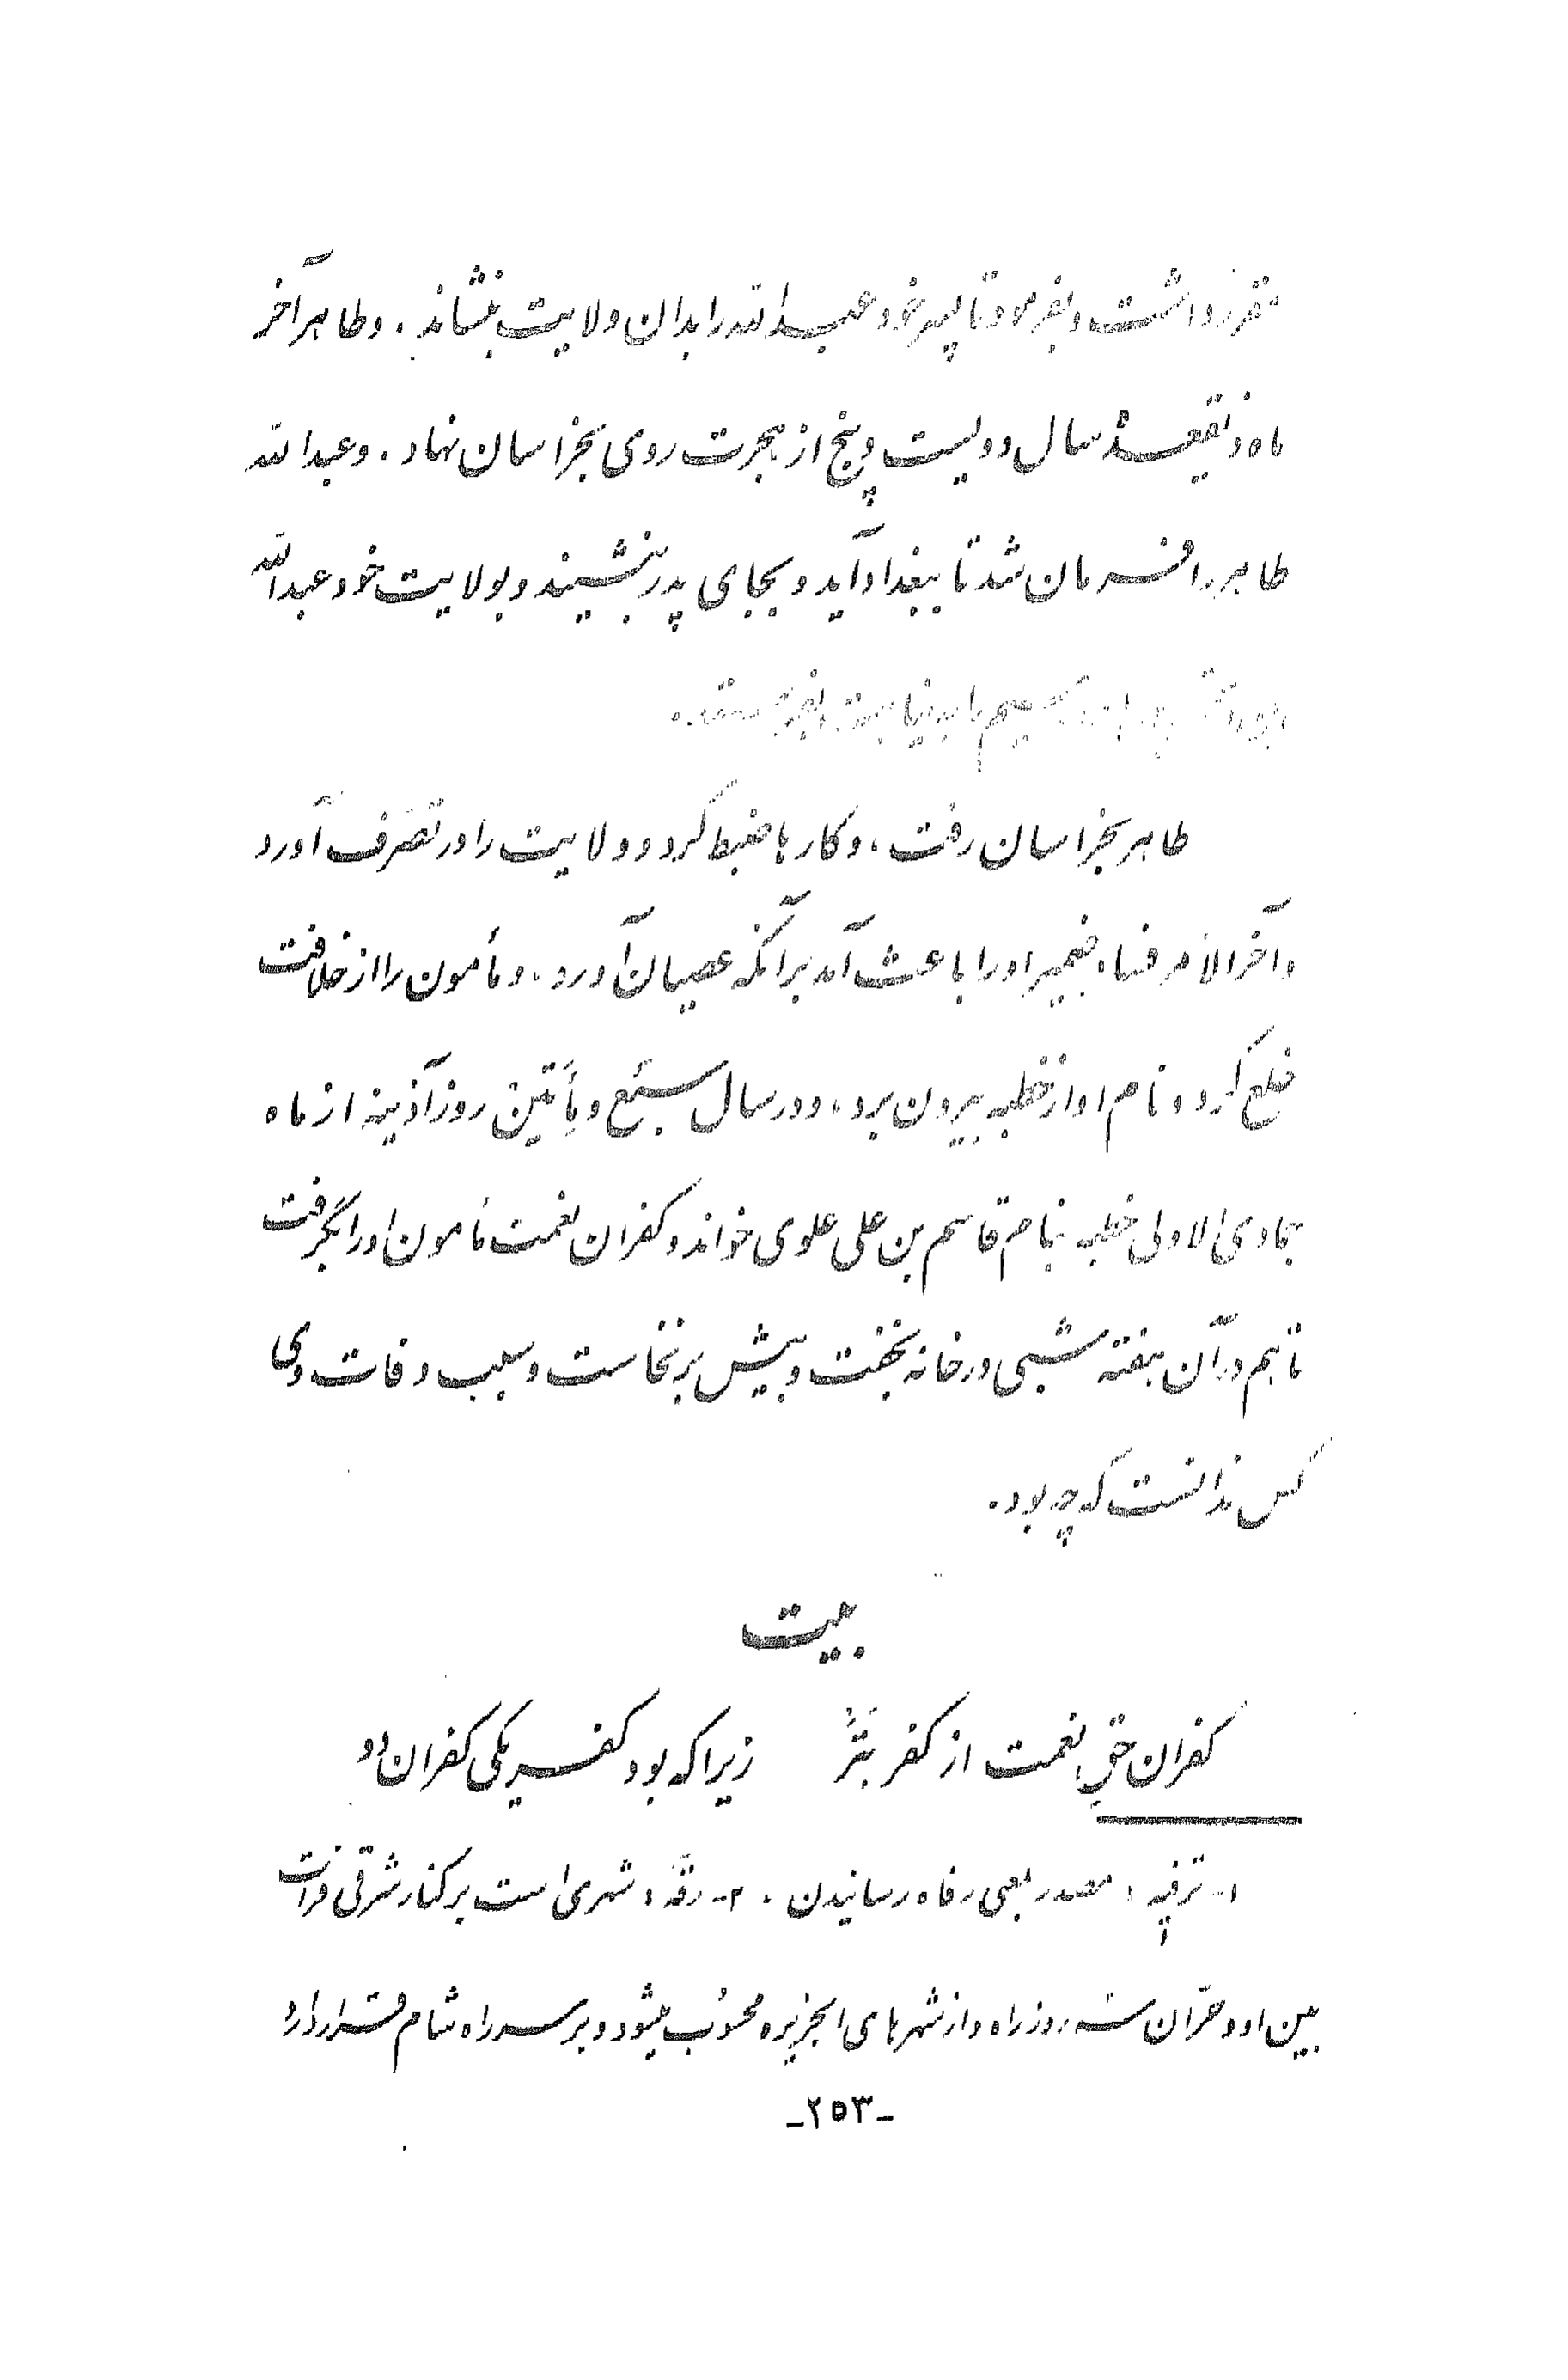 مقرر داشت و بفرمود تا پسر خود عبدالله را بدان ولایت بنشاند. و طاهر آخر
ماه ذیقعدهٔ سال دویست و پنج از هجرت روی بخراسان نهاد. و عبدالله
طاهر را فرمان شد تا ببغداد آید و بجای پدر بنشیند و بولایت خود عبدالله
را بنیابت
طاهر بخراسان رفت، و کارها ضبط کرد و ولایت را در تصرف آورد
و آخر الامر فساد ضمیر او را باعث آمد بر آنکه عصیان آورد، و مأمون را از خلافت
خلع کرد و نام او از خطبه بیرون برد، و در سال سبع و مأتین روز آذینه از ماه
جمادی الاولی خطبه بنام قاسم بن علی علوی خواند و کفران نعمت مأمون او را بگرفت
تا هم در آن هفته شبی در خانه بخفت و بیش برنخاست و سبب وفات وی
کس ندانست که چه بود.
بیت
کفران حق نعمت از کفر بتر زیرا که بود کفر یکی کفران دو
۱- ترفیه: مصدر بمعنی رفاه رسانیدن. ۲- رقه: شهری است بر کنار شرقی فرات
بین او و حران سه روز راه و از شهرهای الجزیره محسوب میشود و بر سر راه شام قرار دارد
-۲۵۳-